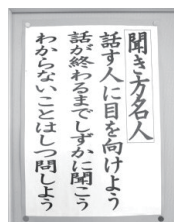 聞き方名人
話す人に目を向けよう
話が終わるまでしずかに聞こう
わからないことはしつ問しよう